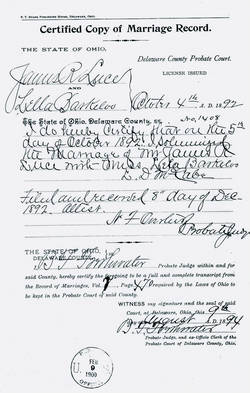 Certified Copy of Marriage Record.
THE STATE OF OHIO,
Delaware County Probate Court.
James R. Luce
LICENSE ISSUED
AND
Lella Barkeloo October 4th A. D. 1892
The State of Ohio, Delaware County, ss. No. 1408
I do hereby Certify that on the 5th
day of October 1892, I Solemnized
the Marriage of Mr James R
Luce with Miss Lela Barkeloo
L. D. McCabe
Filed and recorded 8" day of Dec
1892. Attest.
N F
Probate Judge
THE STATE OF OHIO,
DELAWARE COUNTY
Probate Judge within and for
said County, hereby certify the foregoing to be a full and complete transcript from
the Record of Marriages, Vol. Page 470 required by the Laws of Ohio to
be kept in the Probate Court of said County.
WITNESS my signature and the seal of said
Court, at Delaware, Ohio, this 9th
day of August A. D. 1894
Probate Judge, and ex-Officio Clerk of the
Probate Court of Delaware County, Ohio.
FEB
9
1900